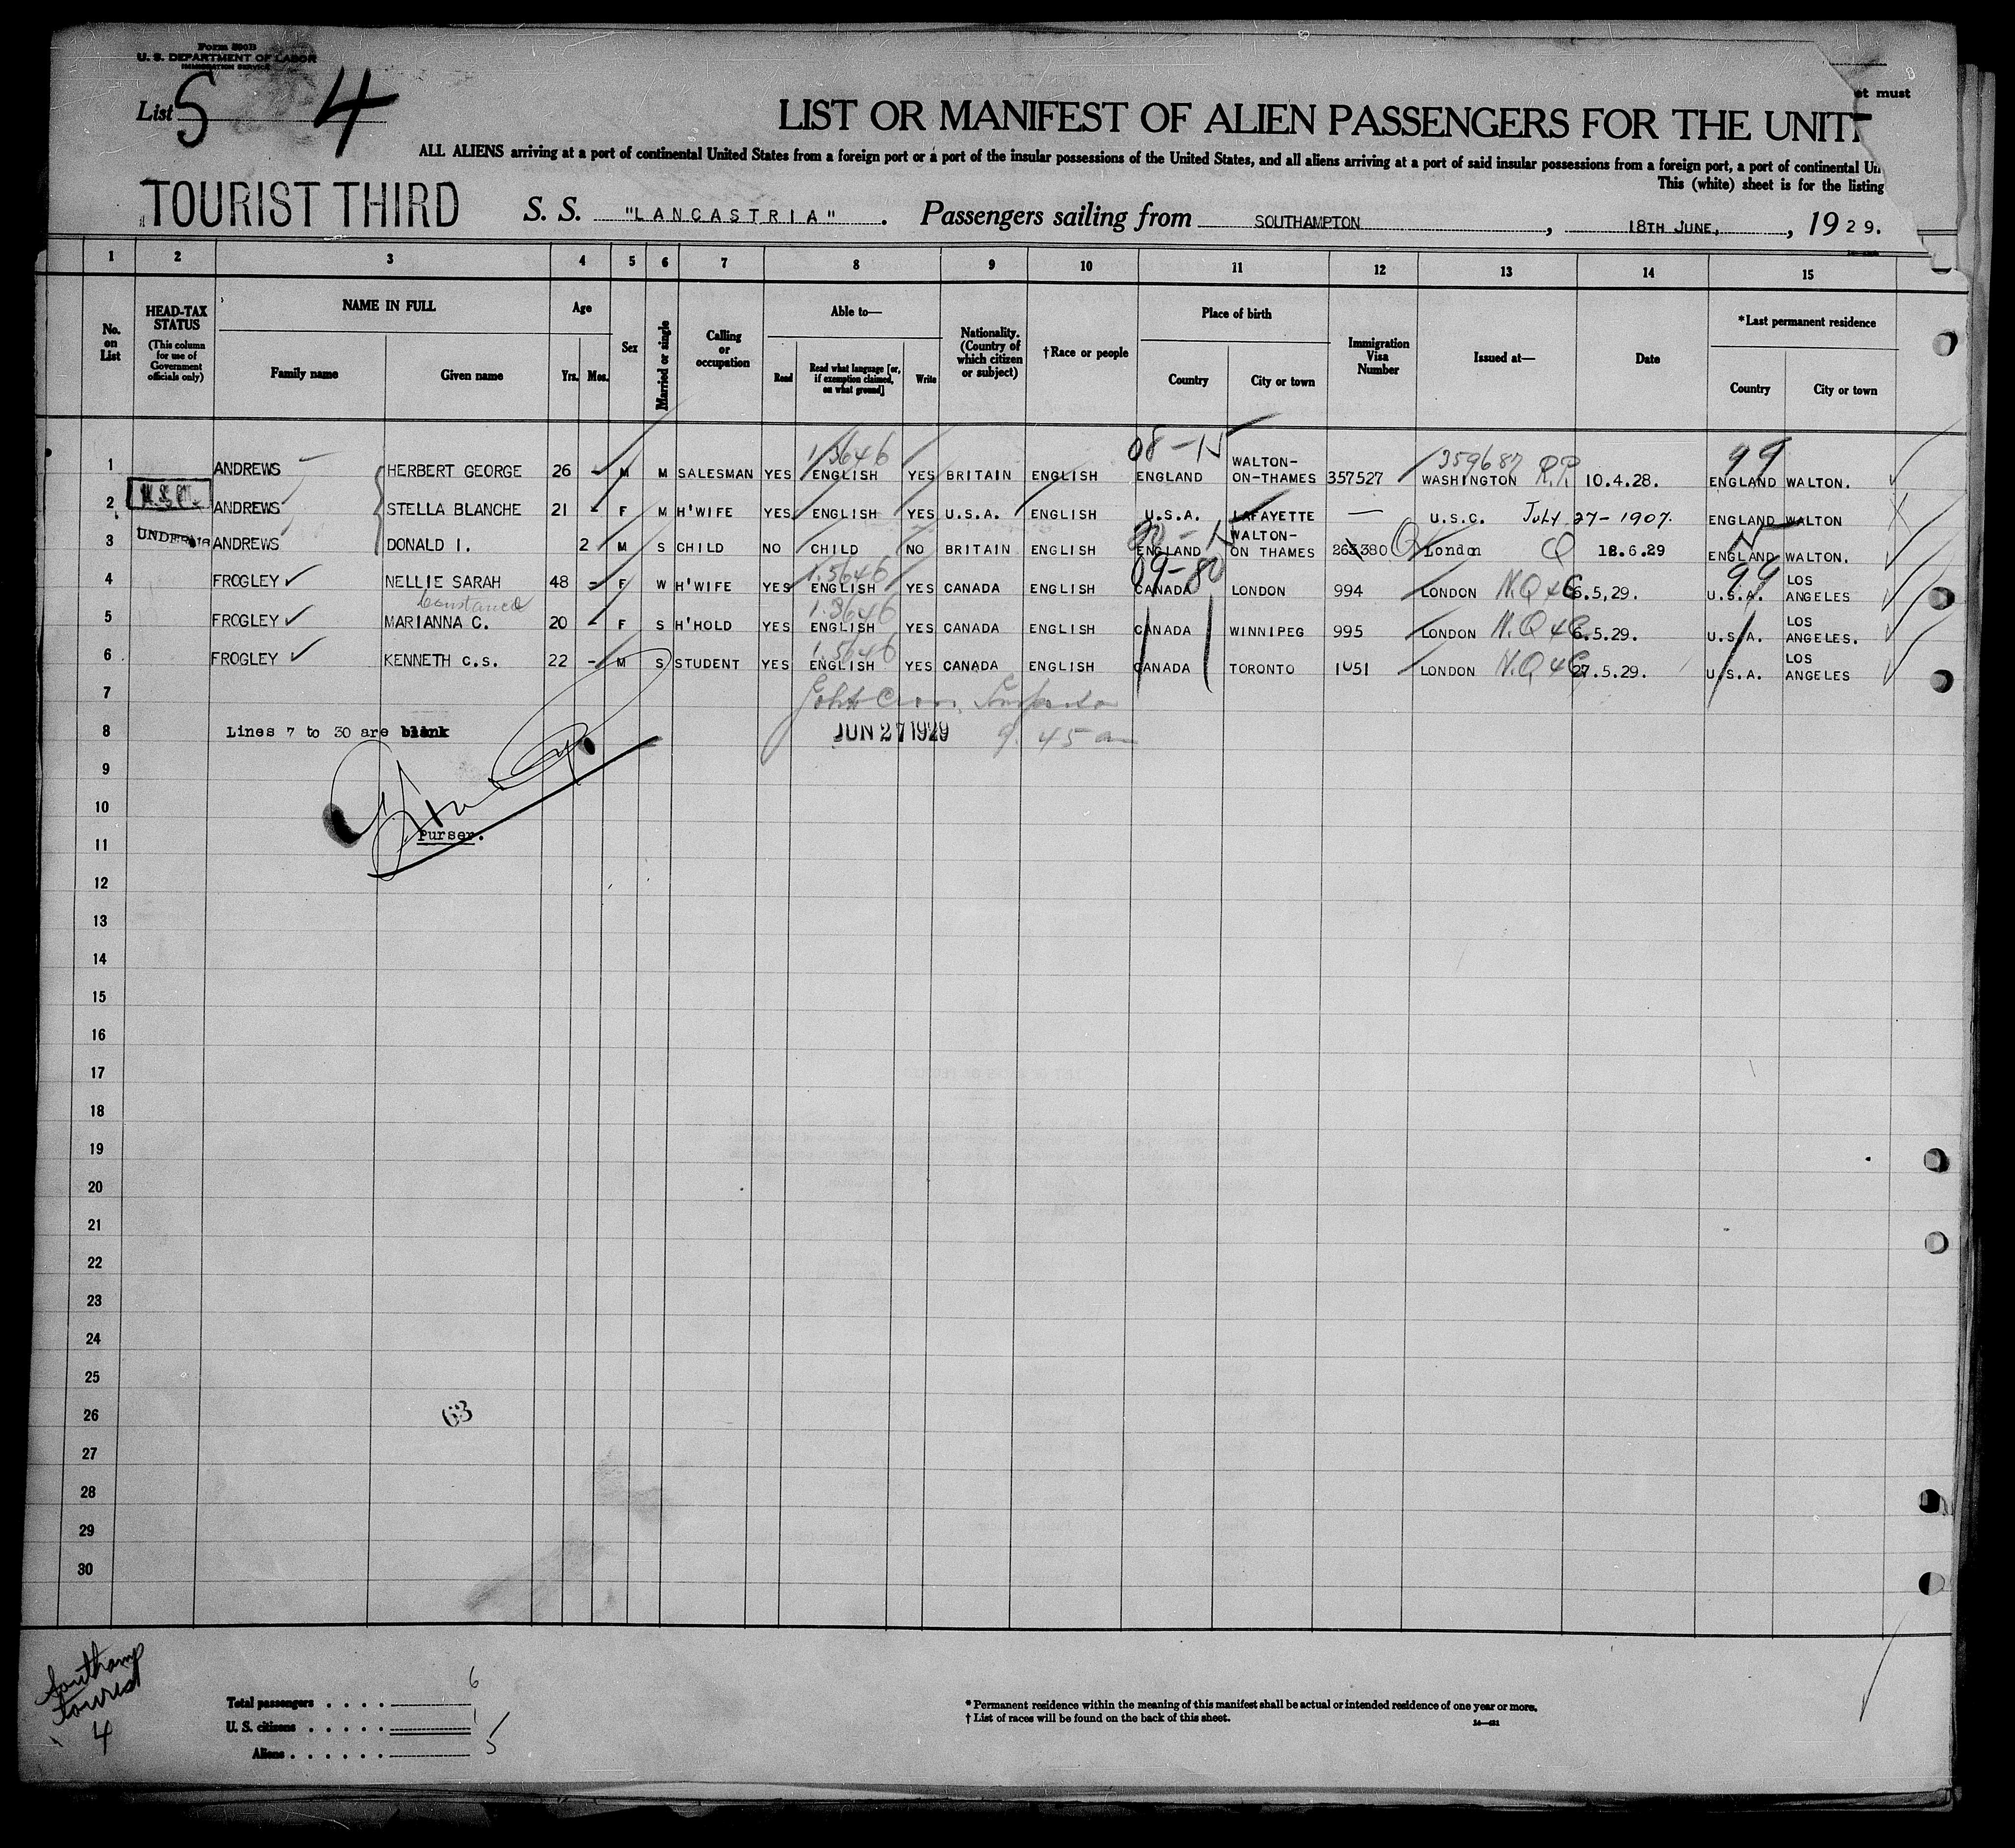 Form 500B
U. S. DEPARTMENT OF LABOR
IMMIGRATION SERVICE
List 5 4
et must
LIST OR MANIFEST OF ALIEN PASSENGERS FOR THE UNIT
ALL ALIENS arriving at a port of continental United States from a foreign port or a port of the insular possessions of the United States, and all aliens arriving at a port of said insular possessions from a foreign port, a port of continental Un
This (white) sheet is for the listing
TOURIST THIRD S. S. "LANCASTRIA". Passengers sailing from SOUTHAMPTON, 18TH JUNE, , 1929.
1 2 3 4 5 6 7 8 9 10 11 12 13 14 15
No. on List
HEAD-TAX STATUS (This column for use of Government officials only)
NAME IN FULL
Family name Given name
Age
Yrs. Mos.
Sex
Married or single
Calling or occupation
Able to—
Read Read what language [or, if exemption claimed, on what ground] Write
Nationality. (Country of which citizen or subject)
†Race or people
Place of birth
Country City or town
Immigration Visa Number
Issued at—
Date
*Last permanent residence
Country City or town
1 ANDREWS HERBERT GEORGE 26 - M M SALESMAN YES 1.3646 ENGLISH YES BRITAIN ENGLISH 08-15 ENGLAND WALTON-ON-THAMES 357527 359687 WASHINGTON R.P. 10.4.28. 99 ENGLAND WALTON.
2 U.S.C. ANDREWS STELLA BLANCHE 21 - F M H'WIFE YES ENGLISH YES U.S.A. ENGLISH U.S.A. LAFAYETTE — U.S.C. July 27-1907. ENGLAND WALTON
3 UNDER 16 ANDREWS DONALD I. 2 M S CHILD NO CHILD NO BRITAIN ENGLISH ENGLAND WALTON-ON THAMES 263380 Q London Q 18.6.29 ENGLAND WALTON.
4 FROGLEY NELLIE SARAH 48 - F W H'WIFE YES 1.3646 ENGLISH YES CANADA ENGLISH 09-80 CANADA LONDON 994 LONDON N.Q 4C 6.5,29. 99 U.S.A. LOS ANGELES
Constance
5 FROGLEY MARIANNA C. 20 - F S H'HOLD YES 1.3646 ENGLISH YES CANADA ENGLISH CANADA WINNIPEG 995 LONDON N.Q 4C 6.5.29. U.S.A. LOS ANGELES.
6 FROGLEY KENNETH C.S. 22 - M S STUDENT YES 1.3646 ENGLISH YES CANADA ENGLISH CANADA TORONTO 1051 LONDON N.Q 4C 27.5.29. U.S.A. LOS ANGELES
7
8 Lines 7 to 30 are blank JUN 27 1929 9.45 am
9
10
Purser.
11
12
13
14
15
16
17
18
19
20
21
22
23
24
25
26 63
27
28
29
30
Southamp
Tourist
4
Total passengers . . . . 6
U. S. citizens . . . . . 1
Aliens . . . . . . 5
* Permanent residence within the meaning of this manifest shall be actual or intended residence of one year or more.
† List of races will be found on the back of this sheet.